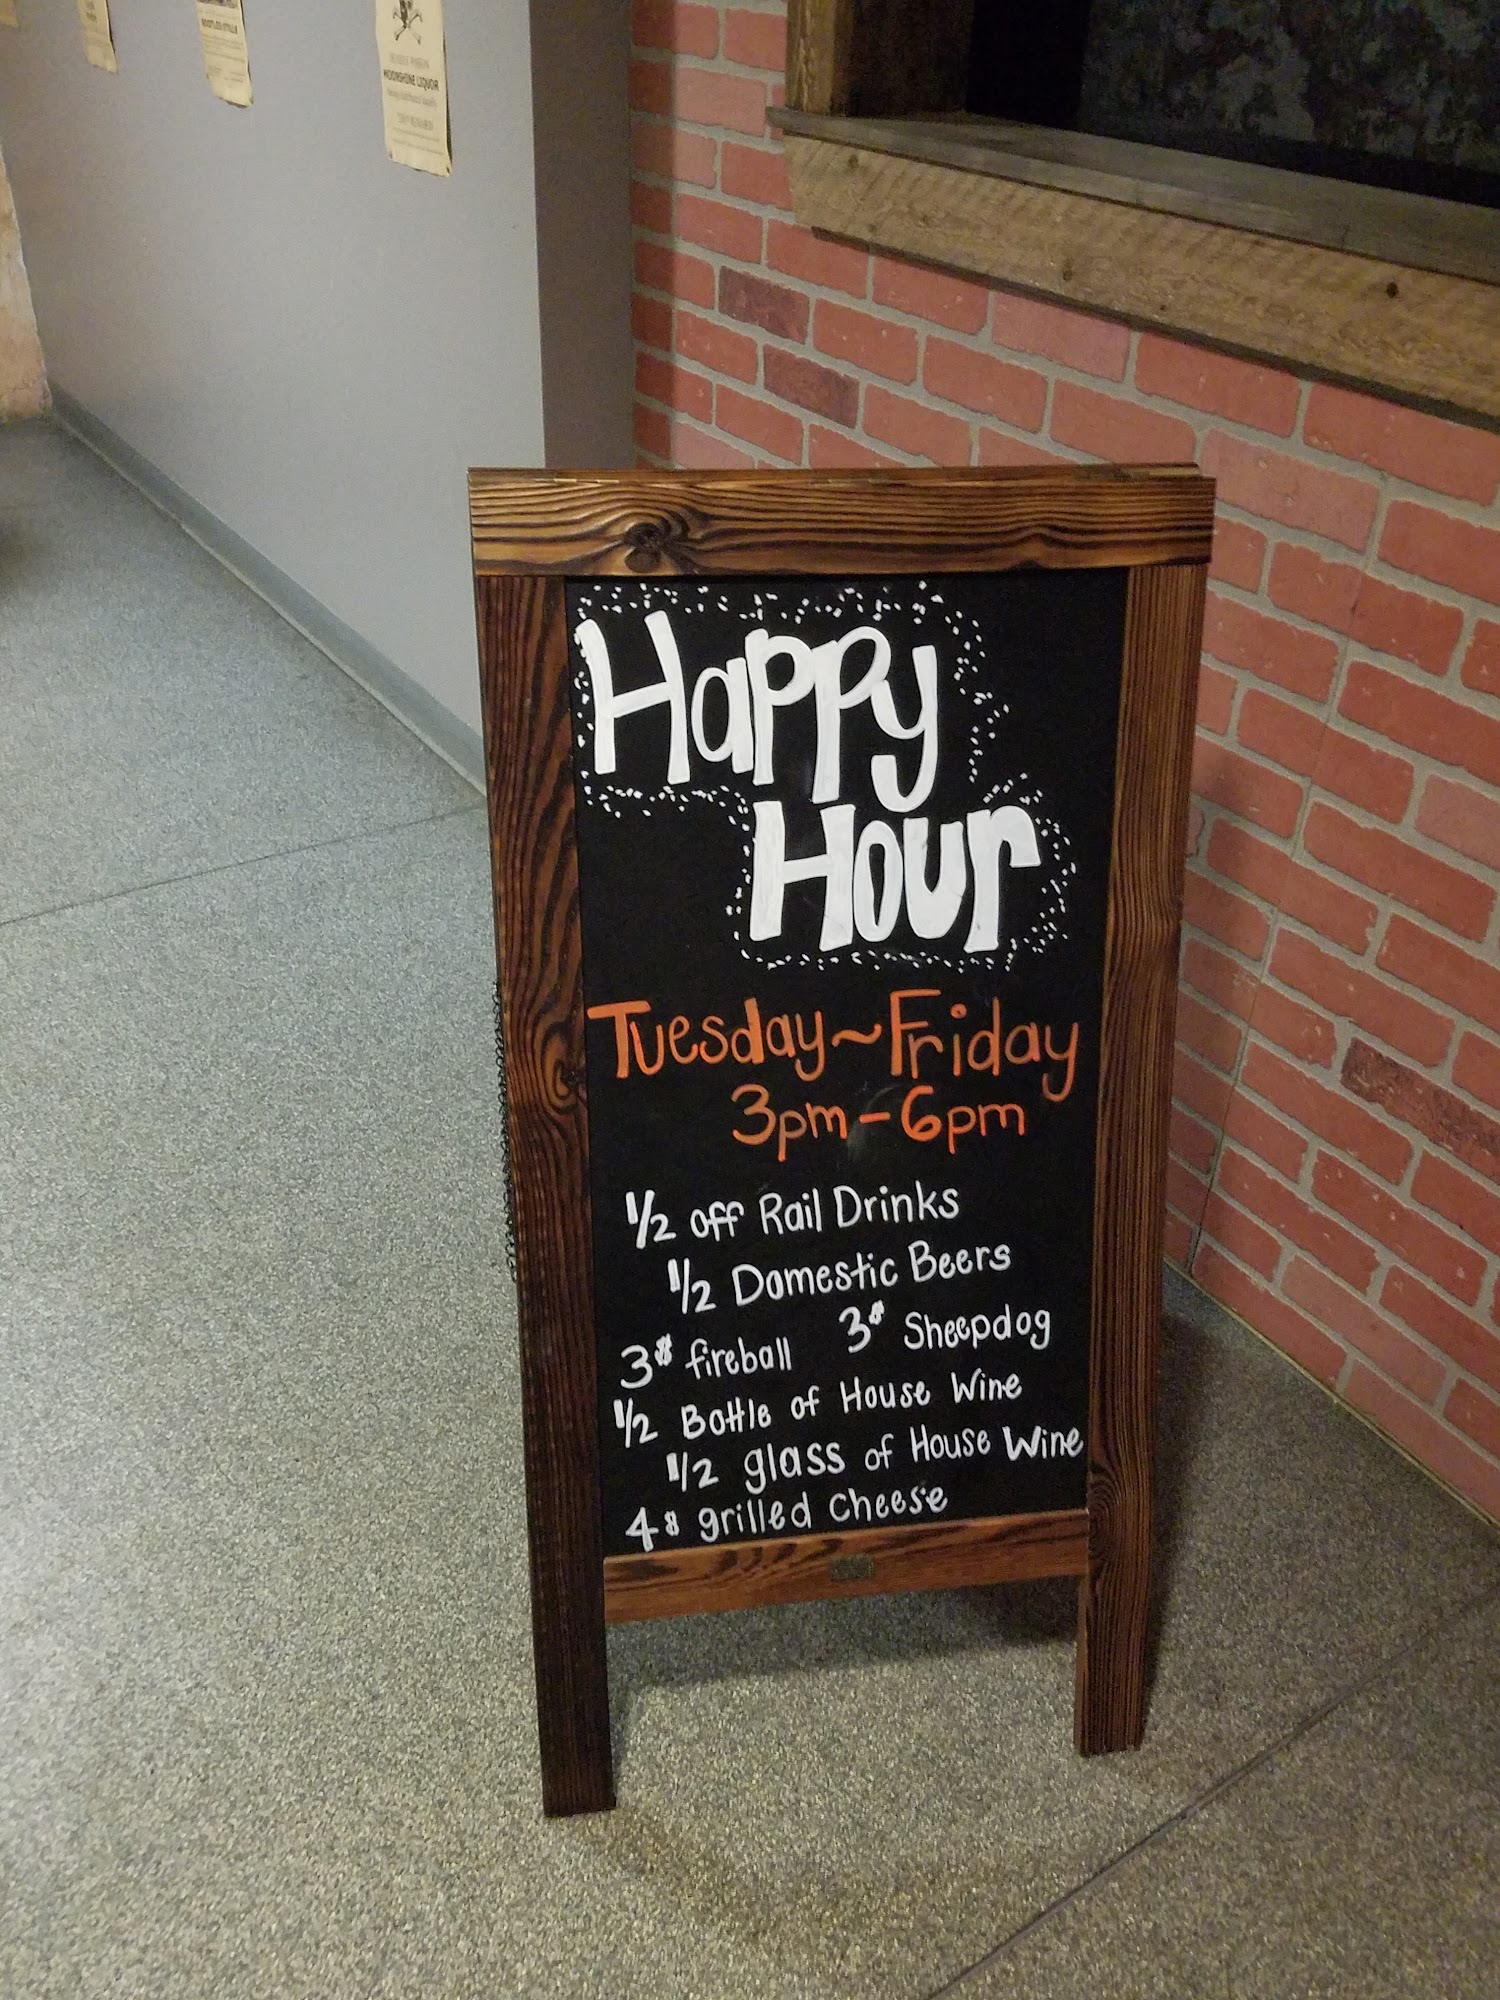 MOONSHINE LIQUOR
Happy
Hour
Tuesday~Friday
3pm-6pm
1/2 off Rail Drinks
1/2 Domestic Beers
3$ fireball 3$ Sheepdog
1/2 Bottle of House Wine
1/2 glass of House Wine
4$ grilled cheese